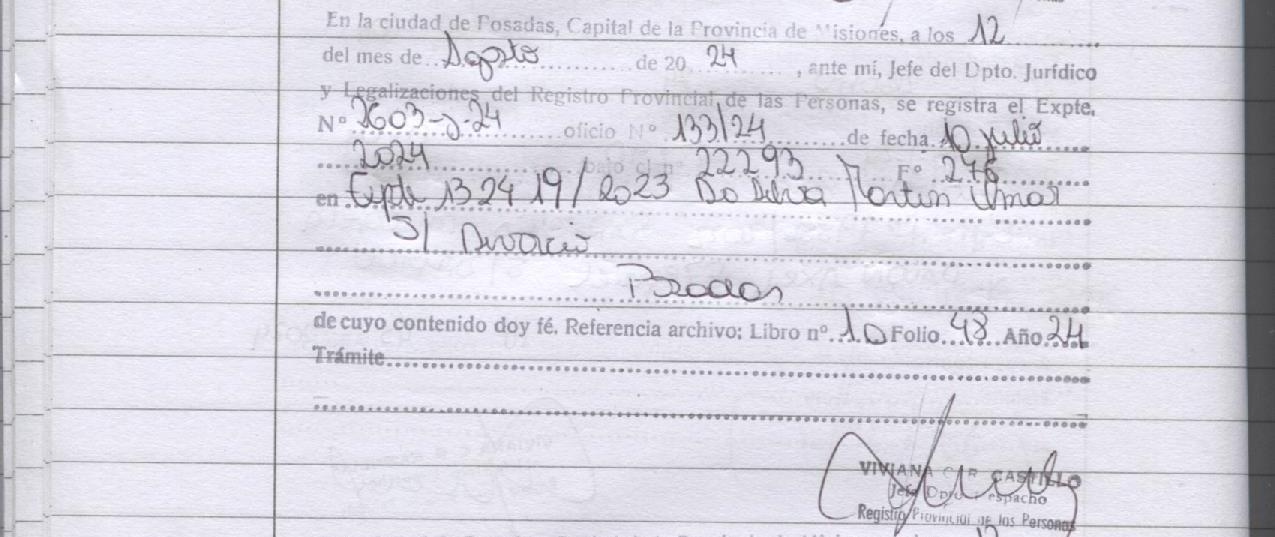 En la ciudad de Posadas, Capital de la Provincia de Misiones, a los 12
del mes de Agosto de 20 24, ante mi, Jefe del Dpto. Jurídico
y Legalizaciones del Registro Provincial de las Personas, se registra el Expte.
Nº 2603-D-24 oficio Nº 133/24 de fecha 10 julio
2024 bajo el nº 22293 Fº 276
en Expte 132419/2023 Do Silva Martin Omar
S/ Divorcio
de cuyo contenido doy fé. Referencia archivo: Libro nº 10 Folio 48 Año 24
Trámite
VIVIANA CASTILLO
Jefe Dpto. Despacho
Registro Provincial de las Personas